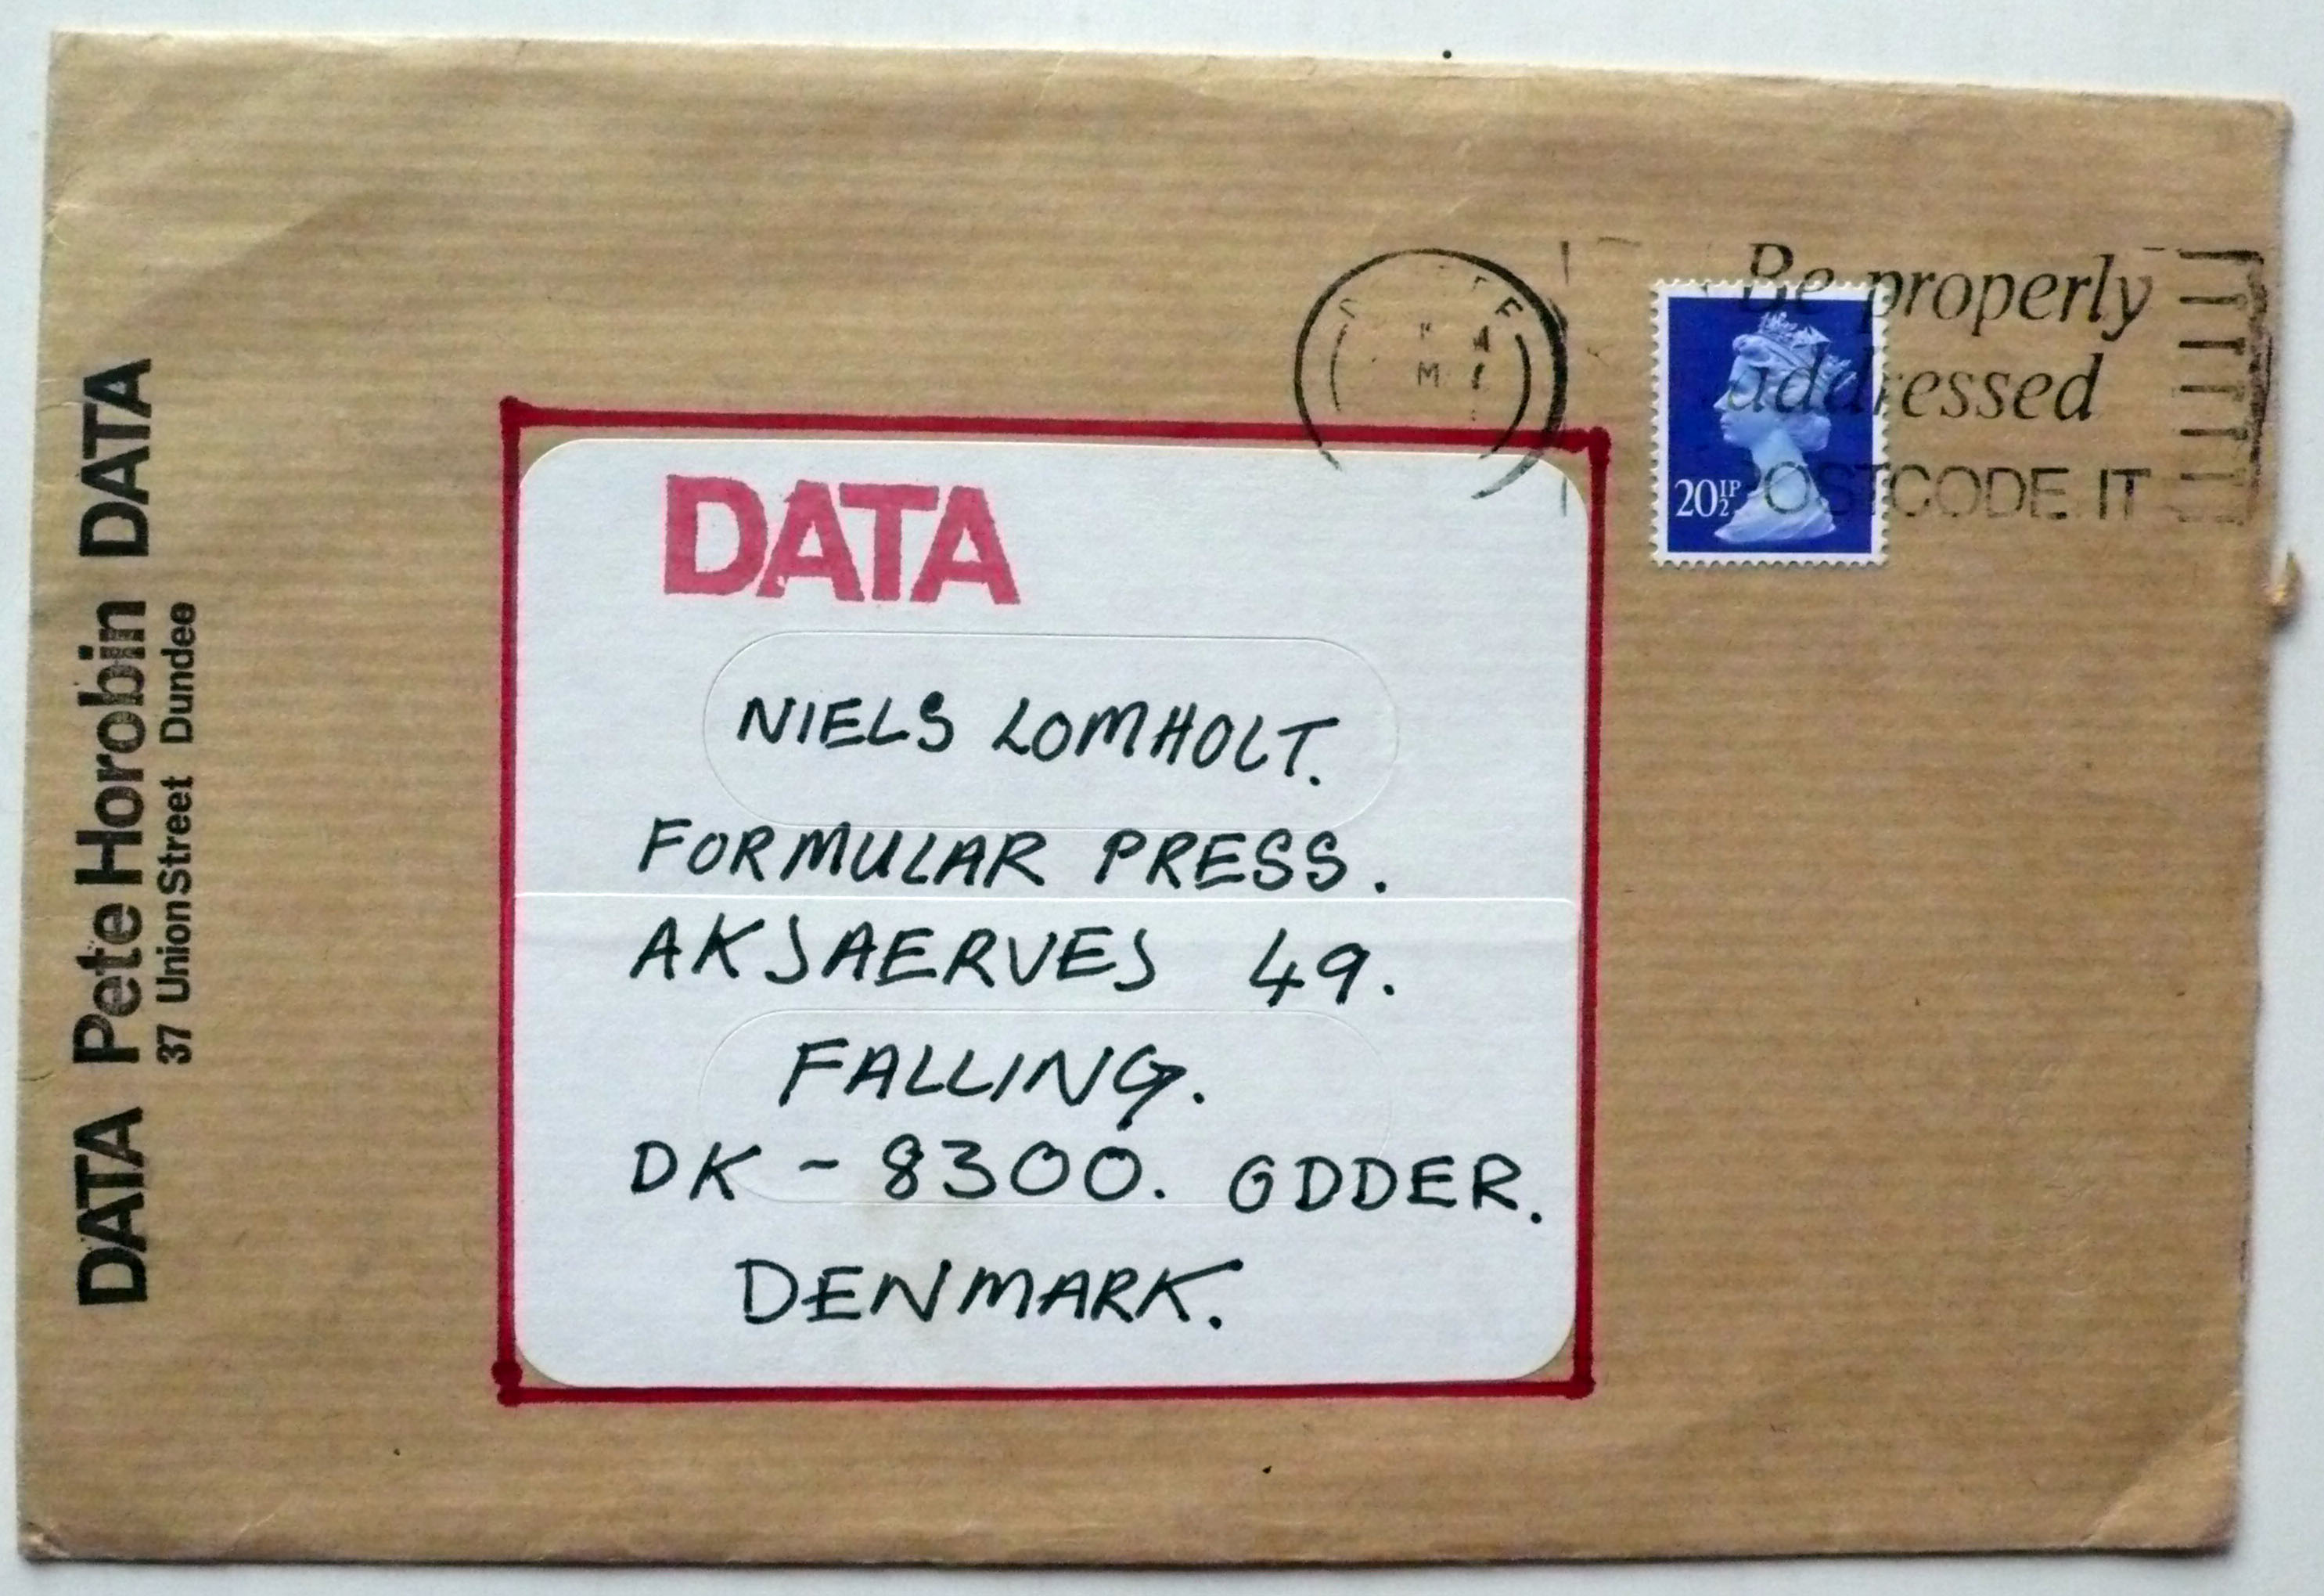 DATA Pete Horobin DATA
37 Union Street Dundee
Be properly
addressed
POSTCODE IT
20½P
DATA
NIELS LOMHOLT.
FORMULAR PRESS.
AKSAERVES 49.
FALLING.
DK - 8300. ODDER.
DENMARK.